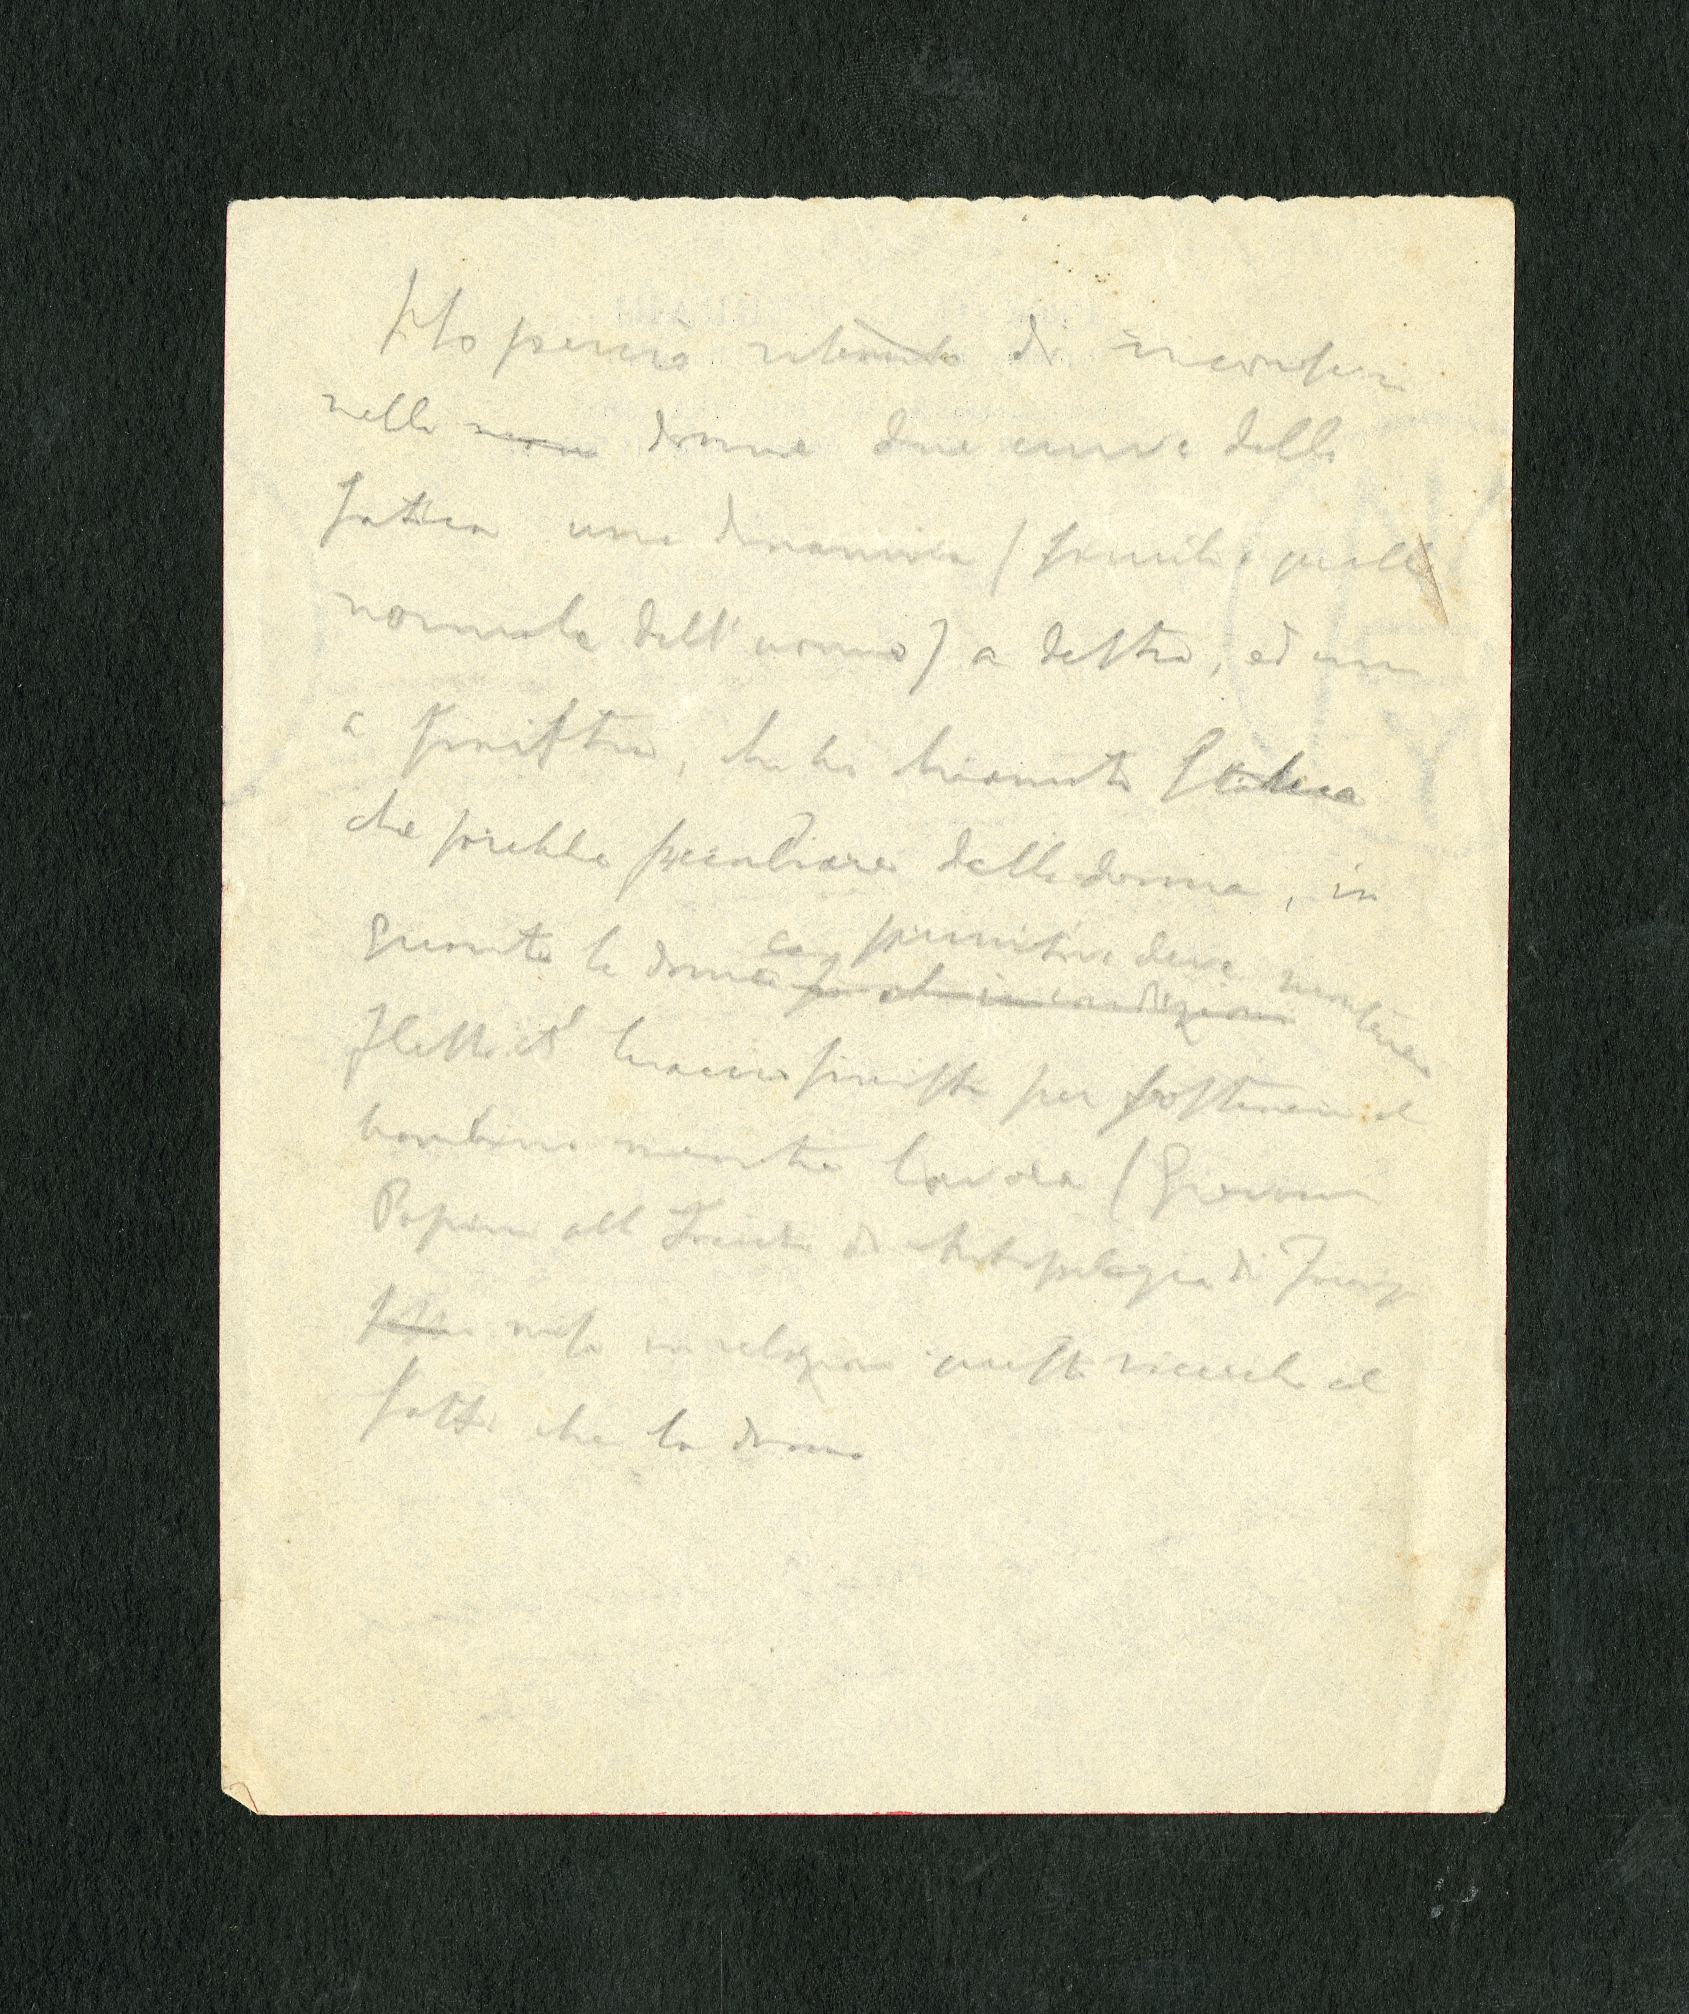 Ho perciò ritenuto di
nella donna due curve della
fatica una dinamica (simile a quella
normale dell'uomo) a destra, ed una
a sinistra, che ho chiamato statica
che sarebbe peculiare della donna, in
quanto la donna primitiva deve mantenere
flesso il braccio sinistro per sostenere il
bambino mentre lavora (Giovanni
Papini alla Società di Antropologia di
mise in relazione queste ricerche al
fatto che la donna